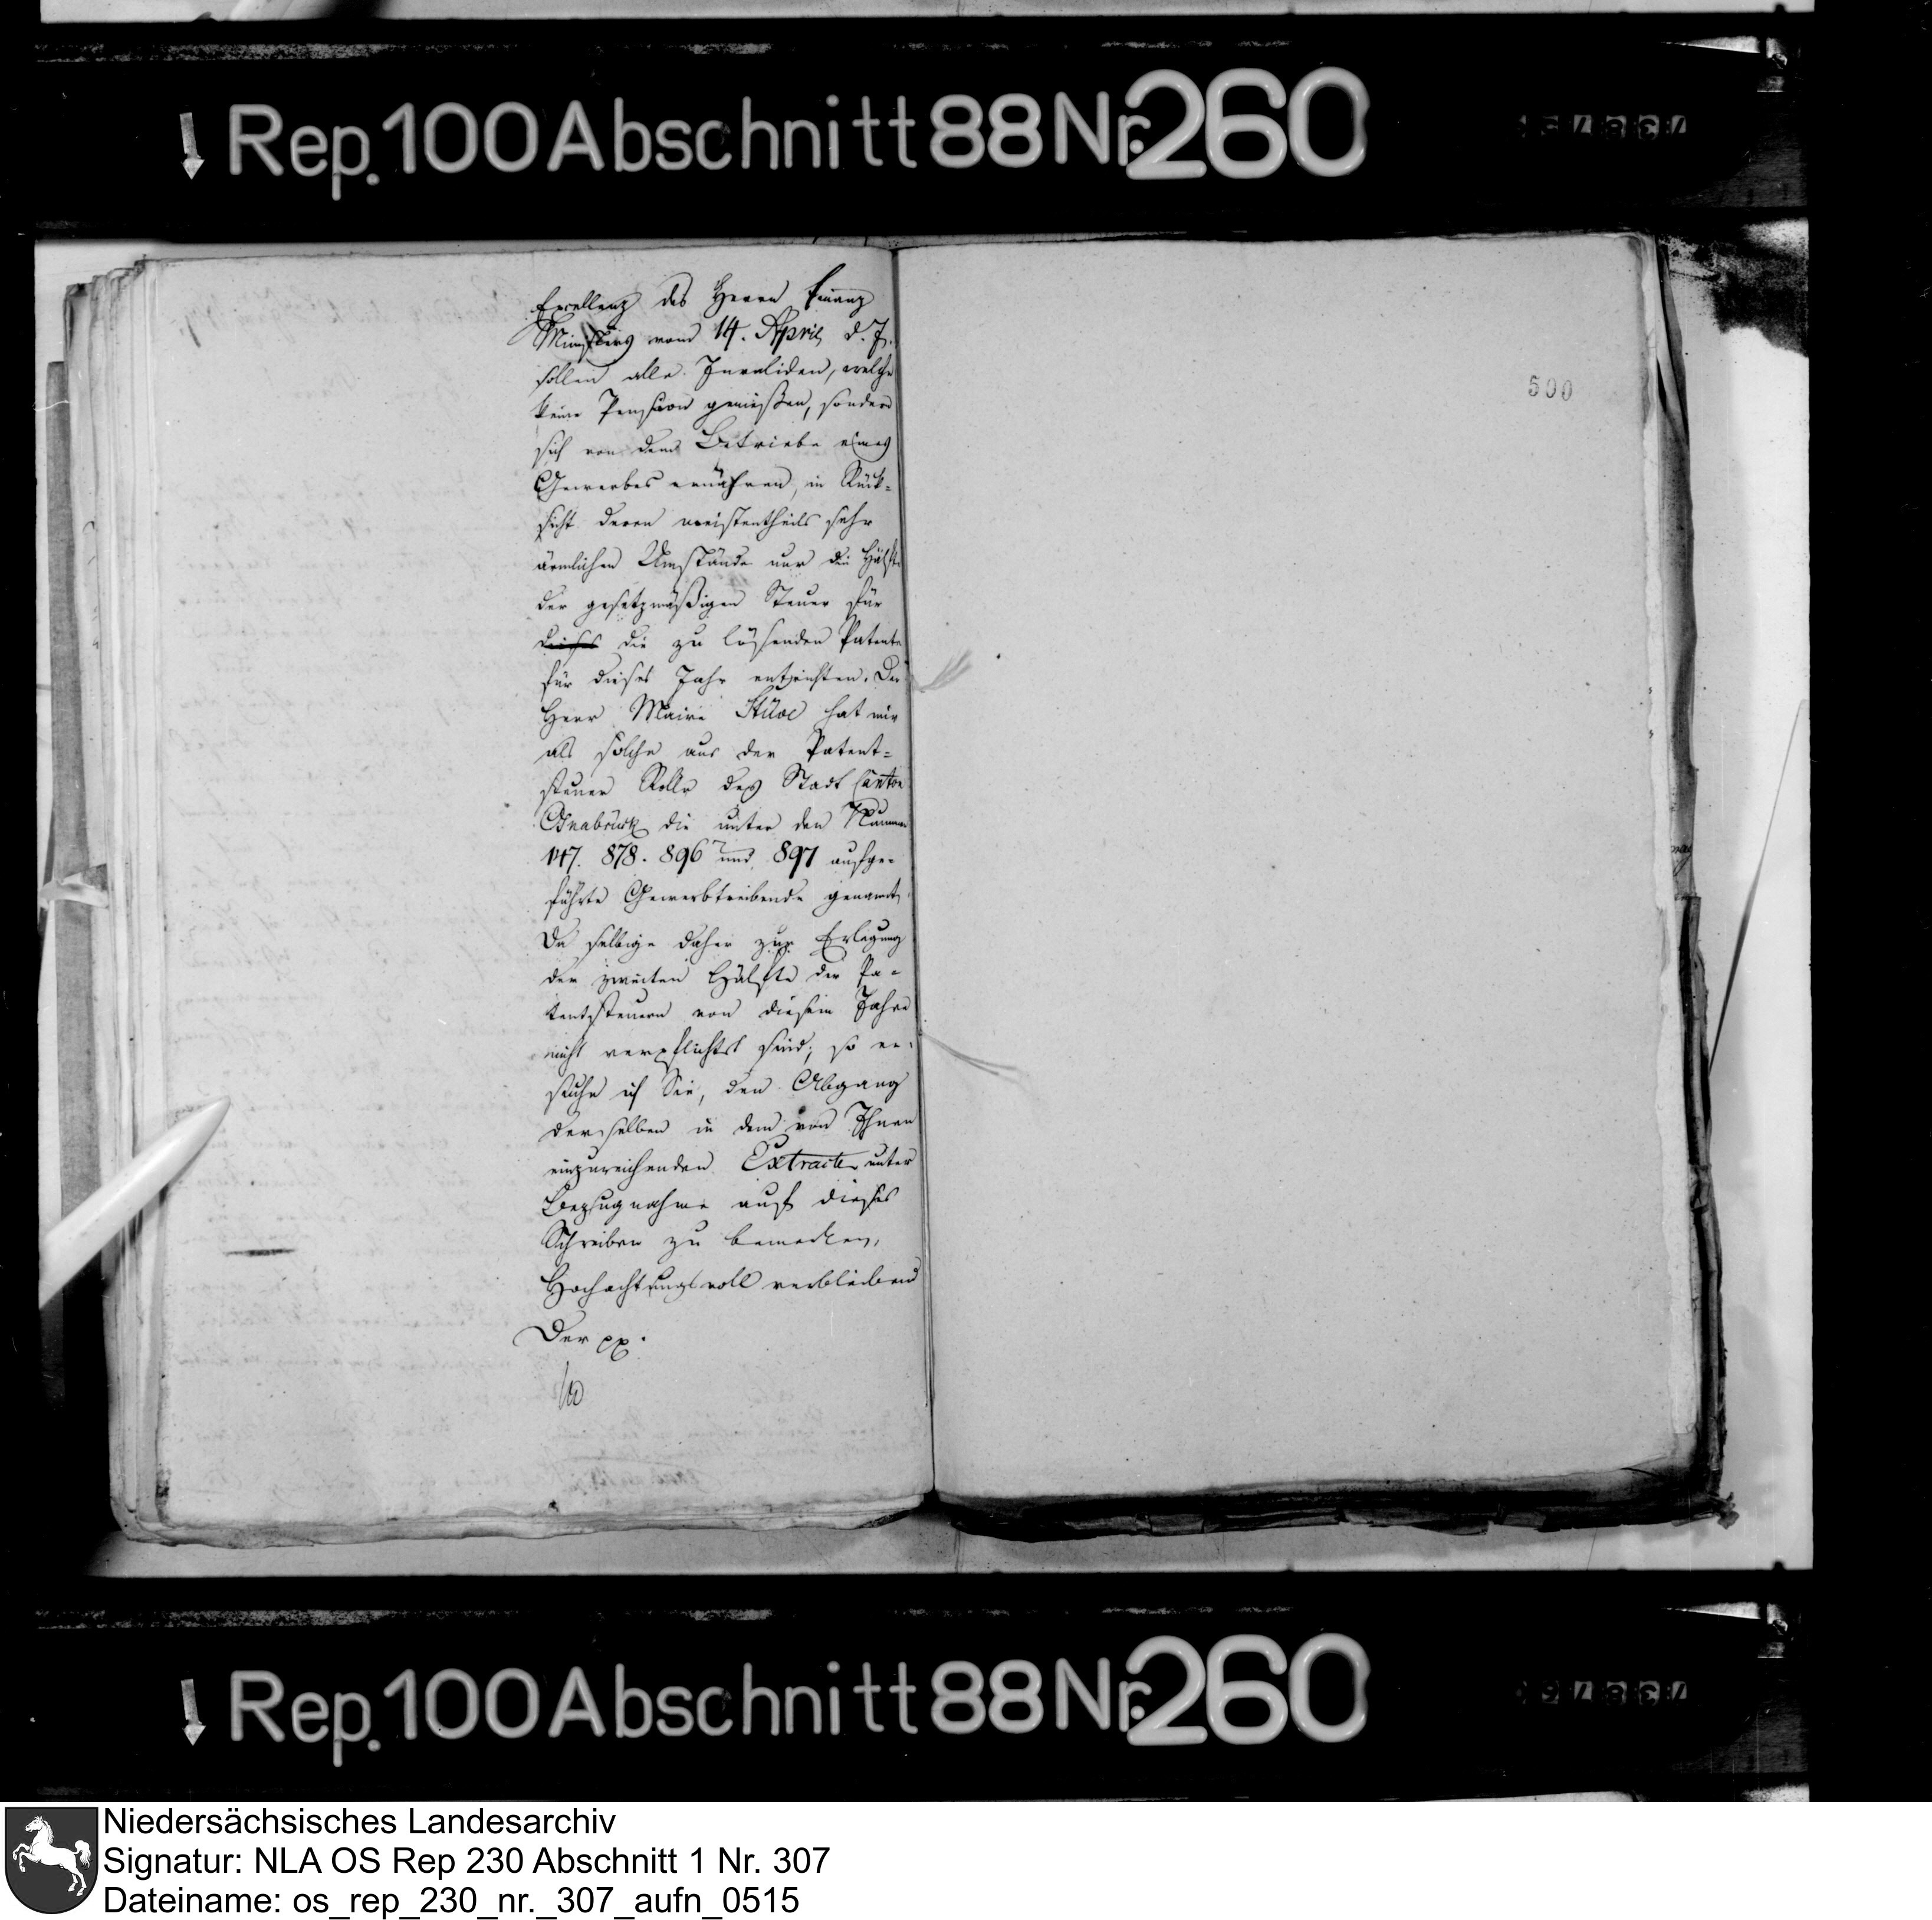 Rep. 100 Abschnitt 88 Nr. 260
Excellenz des Herrn Finanz
Ministers vom 14. April d. J.
sollen alle Invaliden, welche
keine Pension genießen, sondern
sich von dem Betriebe eines
Gewerbes ernähren, in Rück-
sicht deren meistentheils sehr
ärmlichen Umstände nur die Hälfte
der gesetzmäßigen Steuer für
dieses die zu lösenden Patente
für dieses Jahr entrichten. Der
Herr Maire Stüve hat mir
als solche aus der Patent-
steuer Rolle des Stadt Canton
Osnabrück die unter den Nummern
147. 878. 896 und 897 aufge-
führte Gewerbtreibende genannt.
Da selbige daher zur Erlegung
der zweiten Hälfte der Pa-
tentsteuern von diesem Jahre
nicht verpflichtet sind; so er-
suche ich Sie, den Abgang
derselben in dem von Ihnen
einzureichenden Extracte unter
Bezugnahme auf dieses
Schreiben zu bemerken,
Hochachtungsvoll verbleibend
Der pp.
500
Rep. 100 Abschnitt 88 Nr. 260
Niedersächsisches Landesarchiv
Signatur: NLA OS Rep 230 Abschnitt 1 Nr. 307
Dateiname: os_rep_230_nr._307_aufn_0515